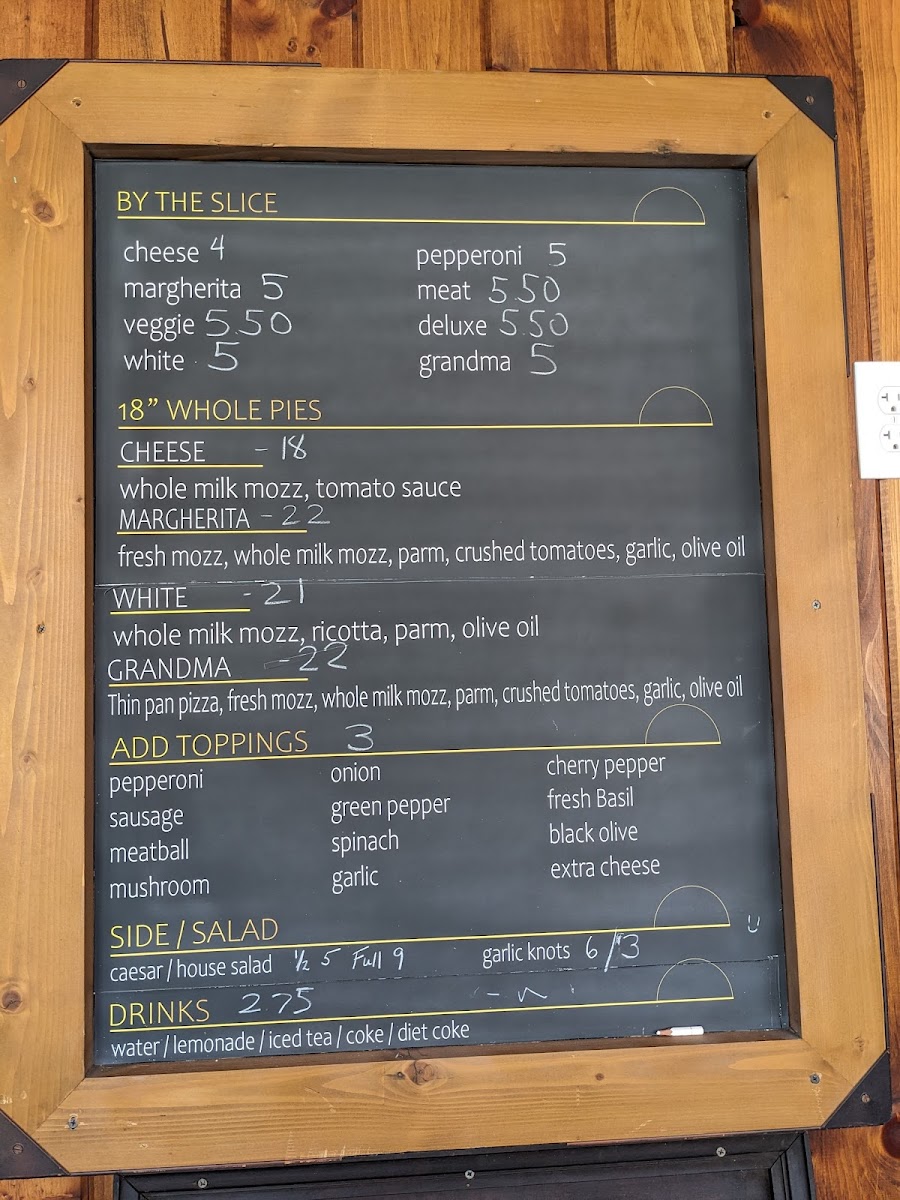 BY THE SLICE
cheese 4 pepperoni 5
margherita 5 meat 5.50
veggie 5.50 deluxe 5.50
white 5 grandma 5
18” WHOLE PIES
CHEESE - 18
whole milk mozz, tomato sauce
MARGHERITA - 22
fresh mozz, whole milk mozz, parm, crushed tomatoes, garlic, olive oil
WHITE - 21
whole milk mozz, ricotta, parm, olive oil
GRANDMA - 22
Thin pan pizza, fresh mozz, whole milk mozz, parm, crushed tomatoes, garlic, olive oil
ADD TOPPINGS 3
pepperoni onion cherry pepper
sausage green pepper fresh Basil
meatball spinach black olive
mushroom garlic extra cheese
SIDE / SALAD
caesar / house salad ½ 5 Full 9 garlic knots 6/3
DRINKS 2.75
water / lemonade / iced tea / coke / diet coke